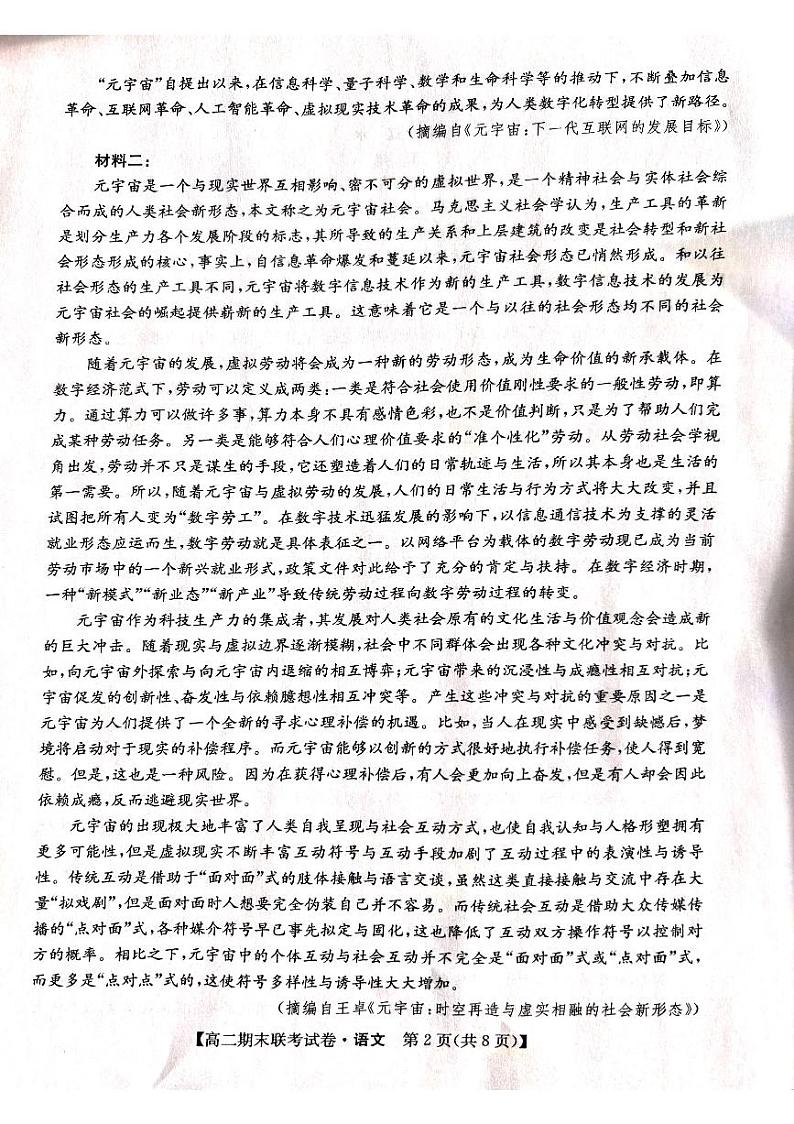 “元宇宙”自提出以来,在信息科学、量子科学、数学和生命科学等的推动下,不断叠加信息
革命、互联网革命、人工智能革命、虚拟现实技术革命的成果,为人类数字化转型提供了新路径。
(摘编自《元宇宙:下一代互联网的发展目标》)
材料二:
元宇宙是一个与现实世界互相影响、密不可分的虚拟世界,是一个精神社会与实体社会综
合而成的人类社会新形态,本文称之为元宇宙社会。马克思主义社会学认为,生产工具的革新
是划分生产力各个发展阶段的标志,其所导致的生产关系和上层建筑的改变是社会转型和新社
会形态形成的核心,事实上,自信息革命爆发和蔓延以来,元宇宙社会形态已悄然形成。和以往
社会形态的生产工具不同,元宇宙将数字信息技术作为新的生产工具,数字信息技术的发展为
元宇宙社会的崛起提供崭新的生产工具。这意味着它是一个与以往的社会形态均不同的社会
新形态。
随着元宇宙的发展,虚拟劳动将会成为一种新的劳动形态,成为生命价值的新承载体。在
数字经济范式下,劳动可以定义成两类:一类是符合社会使用价值刚性要求的一般性劳动,即算
力。通过算力可以做许多事,算力本身不具有感情色彩,也不是价值判断,只是为了帮助人们完
成某种劳动任务。另一类是能够符合人们心理价值要求的“准个性化”劳动。从劳动社会学视
角出发,劳动并不只是谋生的手段,它还塑造着人们的日常轨迹与生活,所以其本身也是生活的
第一需要。所以,随着元宇宙与虚拟劳动的发展,人们的日常生活与行为方式将大大改变,并且
试图把所有人变为“数字劳工”。在数字技术迅猛发展的影响下,以信息通信技术为支撑的灵活
就业形态应运而生,数字劳动就是具体表征之一。以网络平台为载体的数字劳动现已成为当前
劳动市场中的一个新兴就业形式,政策文件对此给予了充分的肯定与扶持。在数字经济时期,
一种“新模式”“新业态”“新产业”导致传统劳动过程向数字劳动过程的转变。
元宇宙作为科技生产力的集成者,其发展对人类社会原有的文化生活与价值观念会造成新
的巨大冲击。随着现实与虚拟边界逐渐模糊,社会中不同群体会出现各种文化冲突与对抗。比
如,向元宇宙外探索与向元宇宙内退缩的相互博弈;元宇宙带来的沉浸性与成瘾性相互对抗;元
宇宙促发的创新性、奋发性与依赖臆想性相互冲突等。产生这些冲突与对抗的重要原因之一是
元宇宙为人们提供了一个全新的寻求心理补偿的机遇。比如,当人在现实中感受到缺憾后,梦
境将启动对于现实的补偿程序。而元宇宙能够以创新的方式很好地执行补偿任务,使人得到宽
慰。但是,这也是一种风险。因为在获得心理补偿后,有人会更加向上奋发,但是有人却会因此
依赖成瘾,反而逃避现实世界。
元宇宙的出现极大地丰富了人类自我呈现与社会互动方式,也使自我认知与人格形塑拥有
更多可能性,但是虚拟现实不断丰富互动符号与互动手段加剧了互动过程中的表演性与诱导
性。传统互动是借助于“面对面”式的肢体接触与语言交谈,虽然这类直接接触与交流中存在大
量“拟戏剧”,但是面对面时人想要完全伪装自己并不容易。而传统社会互动是借助大众传媒传
播的“点对面”式,各种媒介符号早已事先拟定与固化,这也降低了互动双方操作符号以控制对
方的概率。相比之下,元宇宙中的个体互动与社会互动并不完全是“面对面”式或“点对面”式,
而更多是“点对点”式的,这使符号多样性与诱导性大大增加。
(摘编自王卓《元宇宙:时空再造与虚实相融的社会新形态》)
【高二期末联考试卷·语文 第2页(共8页)】